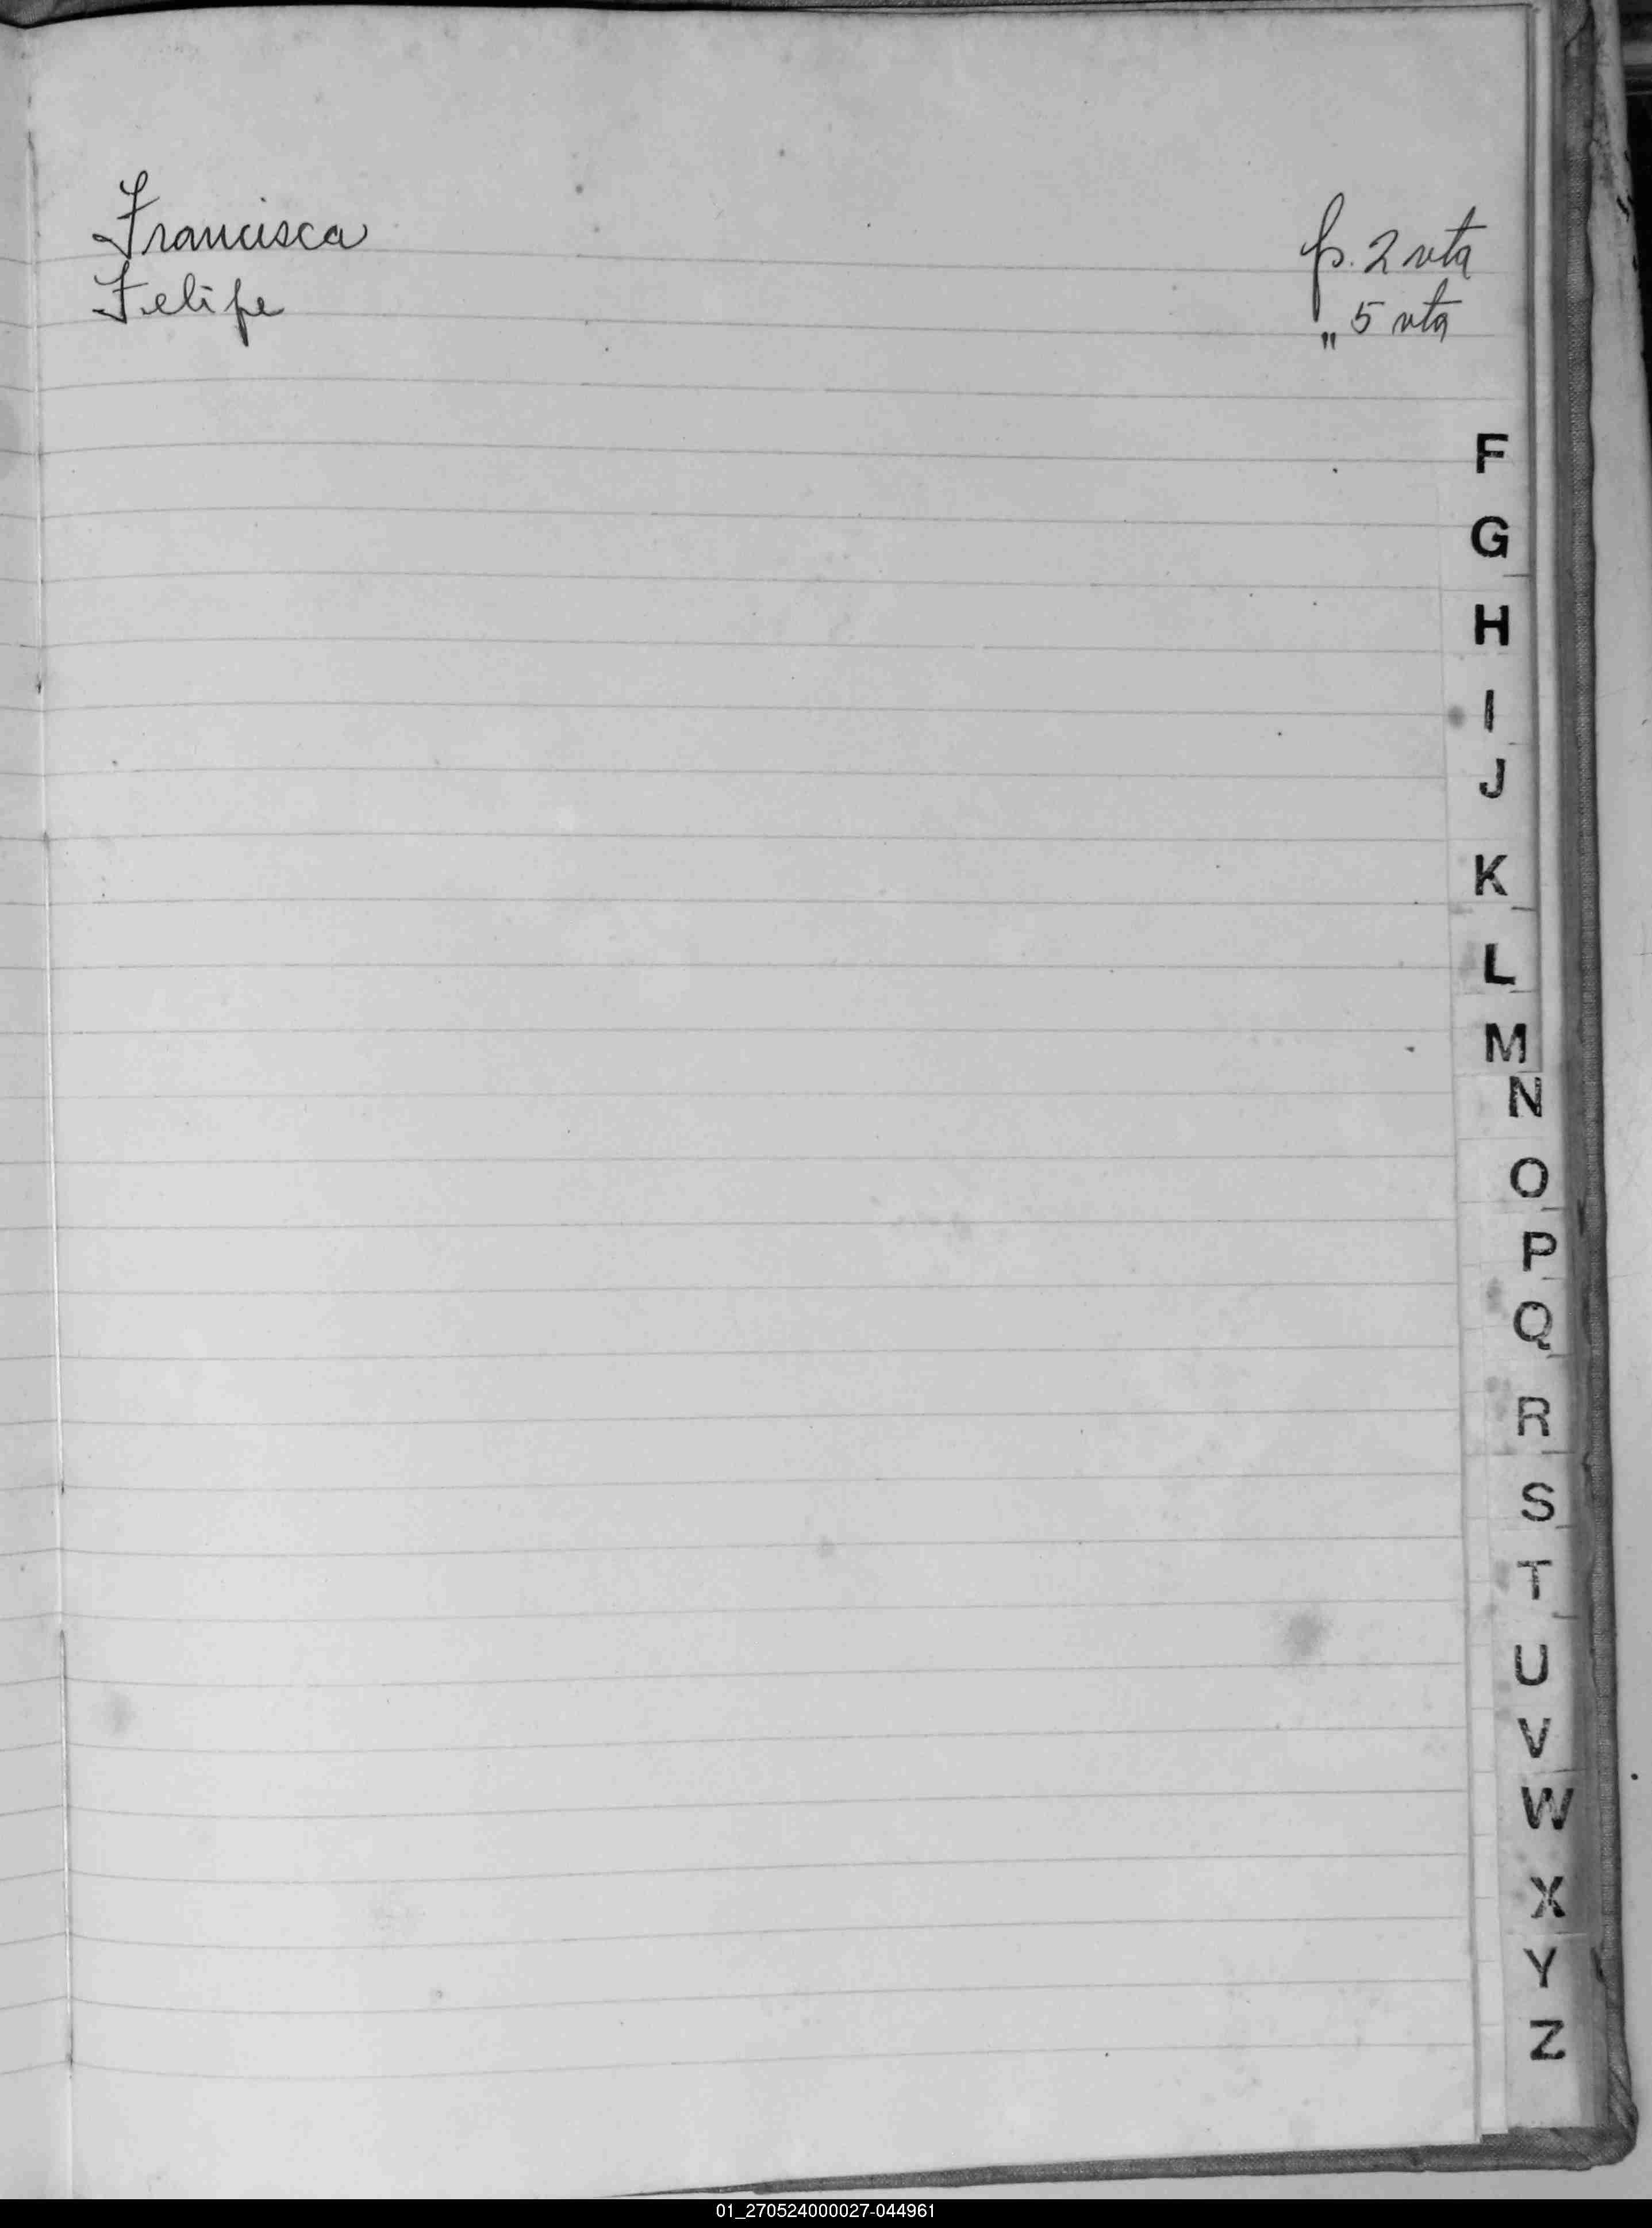 Francisca fs. 2 vta
Felipe " 5 vta
F
G
H
I
J
K
L
M
N
O
P
Q
R
S
T
U
V
W
X
Y
Z
01_270524000027-044961